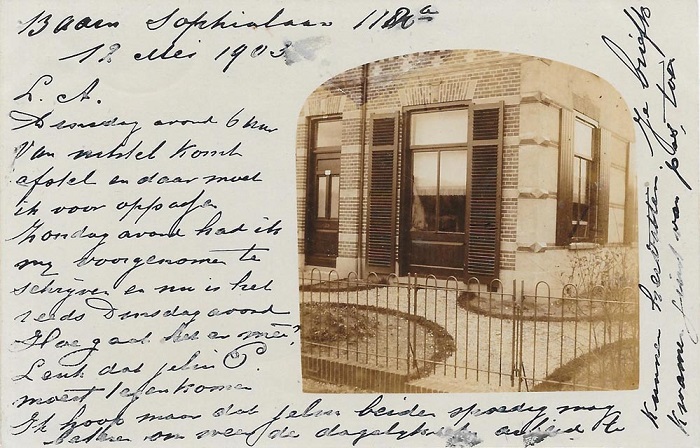 Baarn Sophialaan 11
12 Mei 1903
L. A.
Dinsdag avond 6 uur
Van uitstel komt
afstel en daar moet
ik voor oppassen
Zondag avond had ik
my voorgenomen te
schrijven en nu is het
reeds Dinsdag avond
Hoe gaat het er mee?
Leuk dat jelui P.
moest tegenkomen
Ik hoop maar dat jelui beiden spoedig mag
weer de dagelijksche arbeid te
kunnen hervatten. Je briefk
kwam juist van pas toen